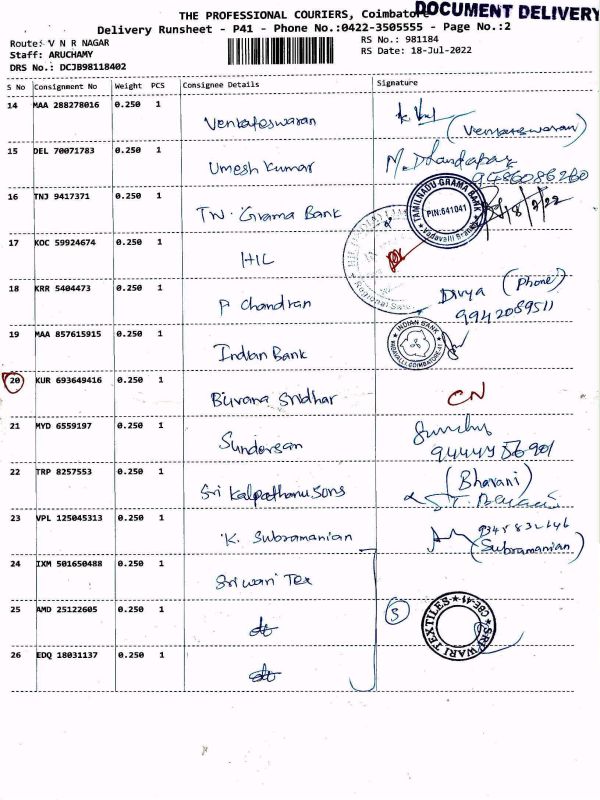 THE PROFESSIONAL COURIERS, Coimbatore DOCUMENT DELIVERY
Delivery Runsheet - P41 - Phone No.:0422-3505555 - Page No.:2
Route: V N R NAGAR RS No.: 981184
Staff: ARUCHAMY RS Date: 18-Jul-2022
DRS No.: DCJB98118402
S No Consignment No Weight PCS Consignee Details Signature
14 MAA 288278016 0.250 1 Venkateswaran (Venkateswaran)
15 DEL 70071783 0.250 1 Umesh Kumar M. Dhandapani
9486086260
16 TNJ 9417371 0.250 1 TN. Grama Bank TAMILNADU GRAMA BANK PIN:641041 Vadavalli Branch 18/7/22
17 KOC 59924674 0.250 1 HIL
18 KRR 5404473 0.250 1 P Chandran Divya (Phone)
9942089511
19 MAA 857615915 0.250 1 Indian Bank INDIAN BANK VADAVALLI, COIMBATORE-41
20 KUR 693649416 0.250 1 Buvana Sridhar CN
21 MYD 6559197 0.250 1 Sundersan
22 TRP 8257553 0.250 1 Sri Kalpatharu Sons (Bhavani)
23 VPL 125045313 0.250 1 K. Subramanian (Subramanian)
24 IXM 501650488 0.250 1 Sriwari Tex
25 AMD 25122605 0.250 1 do 3 SRI WARI TEXTILES CBE-41
26 EDQ 18031137 0.250 1 do